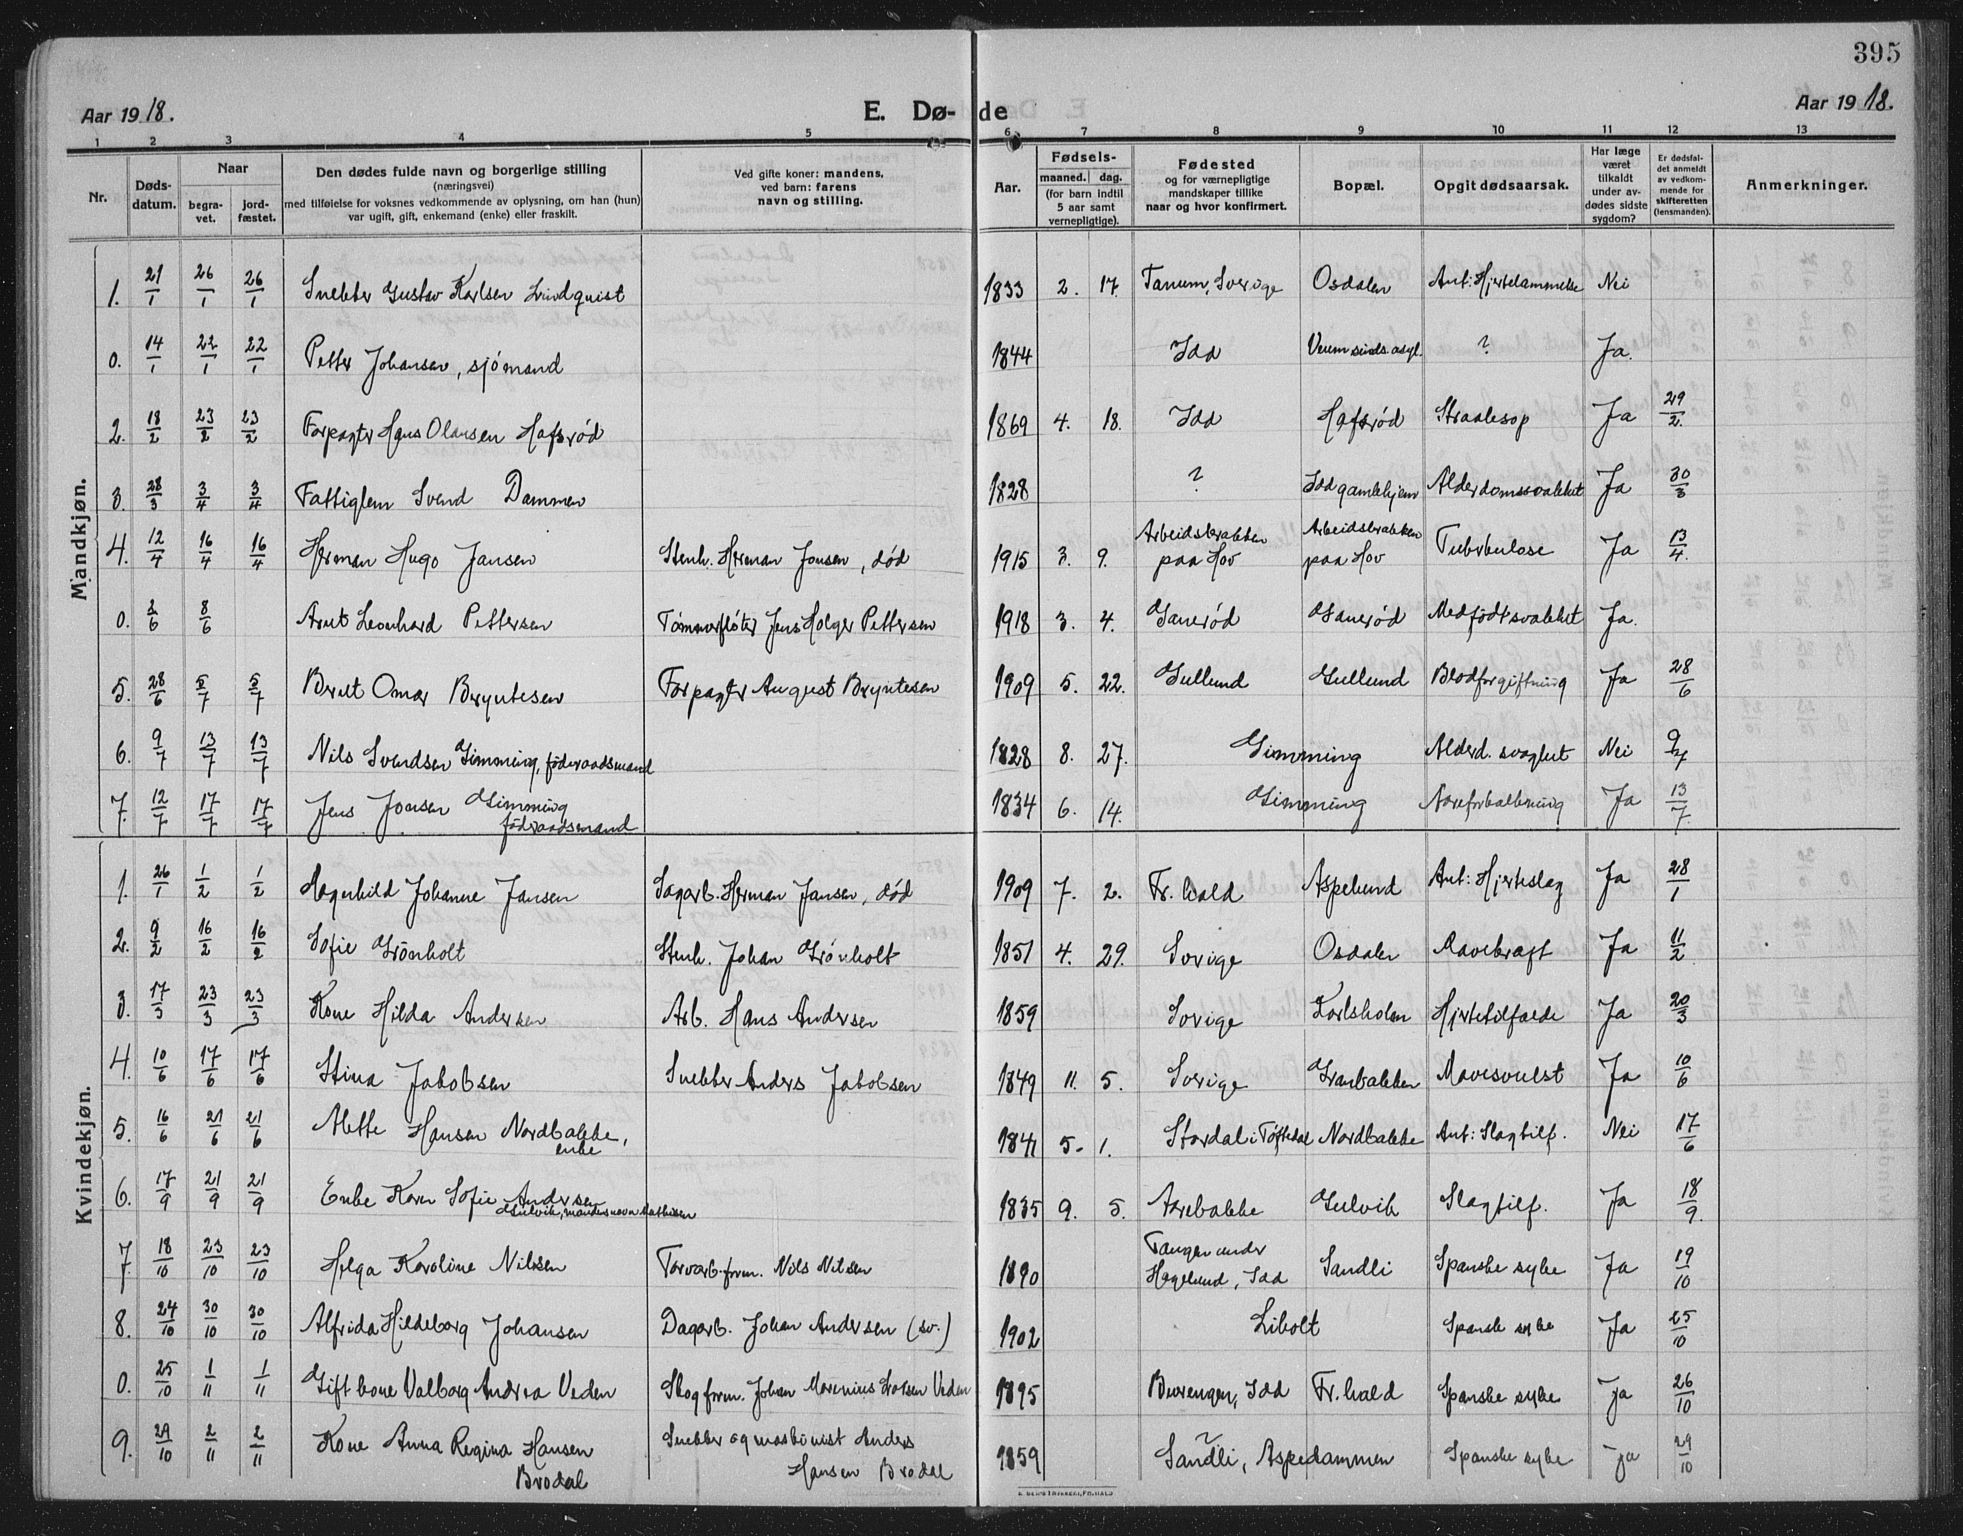 395
Aar 1918.
E. Dø-de
Aar 1918.
1 2 3 4 5 6 7 8 9 10 11 12 13
Nr.
Døds-
datum.
Naar
begra-
vet.
jord-
fæstet.
Den dødes fulde navn og borgerlige stilling
(næringsvei)
med tilføielse for voksnes vedkommende av oplysning, om han (hun)
var ugift, gift, enkemand (enke) eller fraskilt.
Ved gifte koner: mandens,
ved barn: farens
navn og stilling.
Aar.
Fødsels-
maaned. dag.
(for barn indtil
5 aar samt
vernepligtige).
Fødested
og for værnepligtige
mandskaper tillike
naar og hvor konfirmert.
Bopæl.
Opgit dødsaarsak.
Har læge
været
tilkaldt
under av-
dødes sidste
sygdom?
Er dødsfal-
det anmeldt
av vedkom-
mende for
skifteretten
(lensmanden).
Anmerkninger.
Mandkjøn.
1. 21/1 26/1 26/1 Snekker Gustav Karlsen Lindquist 1833 2. 17. Tanum, Sverige Osdalen Ant: Hjertelammelse Nei
0. 14/1 22/1 22/1 Petter Johansen, sjømand 1844 Idd Veum sinds.asyl. ? Ja.
2. 18/2 23/2 23/2 Forpagter Hans Olausen Hafsrød 1869 4. 18. Idd Hafsrød Straalesop Ja 29/2.
3. 28/3 3/4 3/4 Fattiglem Svend Dammen 1828 ? Idd gamlehjem Alderdomssvakhet Ja 30/3
4. 12/4 16/4 16/4 Herman Hugo Jansen Stenh. Herman Jansen, død 1915 3. 9. Arbeidsbrakken paa Hov Arbeidsbrakken paa Hov Tuberkulose Ja 13/4.
0. 3/6 8/6 Arnt Leonhard Pettersen Tømmerfløter Jens Holger Pettersen 1918 3. 4. Ganerød Ganerød Medfødt svakhet Ja.
5. 28/6 5/7 5/7 Brut Omar Bryntesen Forpagter August Bryntesen 1909 5. 22. Gullund Gullund Blodforgiftning Ja 28/6
6. 9/7 13/7 13/7 Nils Svendsen Gimming, føderaadsmand 1828 8. 27. Gimming Alderd. svaghet Nei 9/7
7. 12/7 17/7 17/7 Jens Jonsen Gimming
føderaadsmand 1834 6. 14. Gimming Aareforkalkning Ja 13/7.
Kvindekjøn.
1. 26/1 1/2 1/2 Ragnhild Johanne Jansen Sagarb. Herman Jansen, død 1909 7. 2. Fr.hald Aspelund Ant: Hjerteslag Ja 28/1
2. 9/2 16/2 16/2 Sofie Grönholt Stenh. Johan Grønholt 1851 4. 29. Sverige Osdalen Mavekræft Ja 11/2
3. 17/3 23/3 23/3 Kone Hilda Andersen Arb. Hans Andersen 1859 Sverige Karlsholm Hjertetilfælde Ja 20/3
4. 10/6 17/6 17/6 Stina Jakobsen Snekker Anders Jakobsen 1849 11. 5. Sverige Granbakken Mavesvulst Ja 10/6
5. 16/6 21/6 21/6 Alette Hansen Nordbakke,
enke 1841 5- 1. Stordal i Tøftedal Nordbakke Ant: Slagtilf. Nei 17/6
6. 17/9 21/9 21/9 Enke Karen Sofie Andersen
Gulvik, mandens navn Mathisen 1835 9. 5. Aarebakke Gulvik Slagtilf. Ja 18/9.
7. 18/10 23/10 23/10 Helga Karoline Nilssen Torvarb.frm. Nils Nilsen 1890 Tangen under
Hagelund, Idd Sandli Spanske syke Ja 19/10
8. 24/10 30/10 30/10 Alfrida Hildeborg Johansen Dagarb. Johan Andersen (sv.) 1902 Liholt Spanske syke Ja 25/10
0. 25/10 1/11 1/11 Gift kone Valborg Andrea Veden Skogfrm. Johan Marenius Larsen Veden 1895 Buvengen, Idd Fr.hald Spanske syke Ja 26/10
9. 29/10 2/11 2/11 Kone Anna Regina Hansen
Brødal Snekker og maskinist Anders
Hansen Brødal 1859 ? Sandli, Aspedammen Spanske syke Ja 29/10